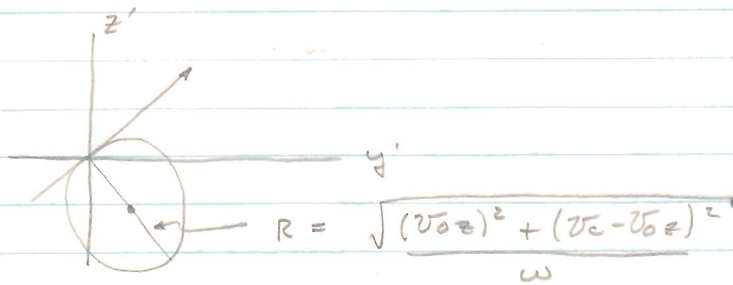 z'
y'
R = √(v₀z)² + (v_c - v₀z)²
ω